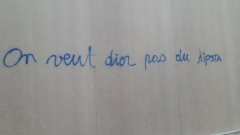 On veut dior pas du kipsta